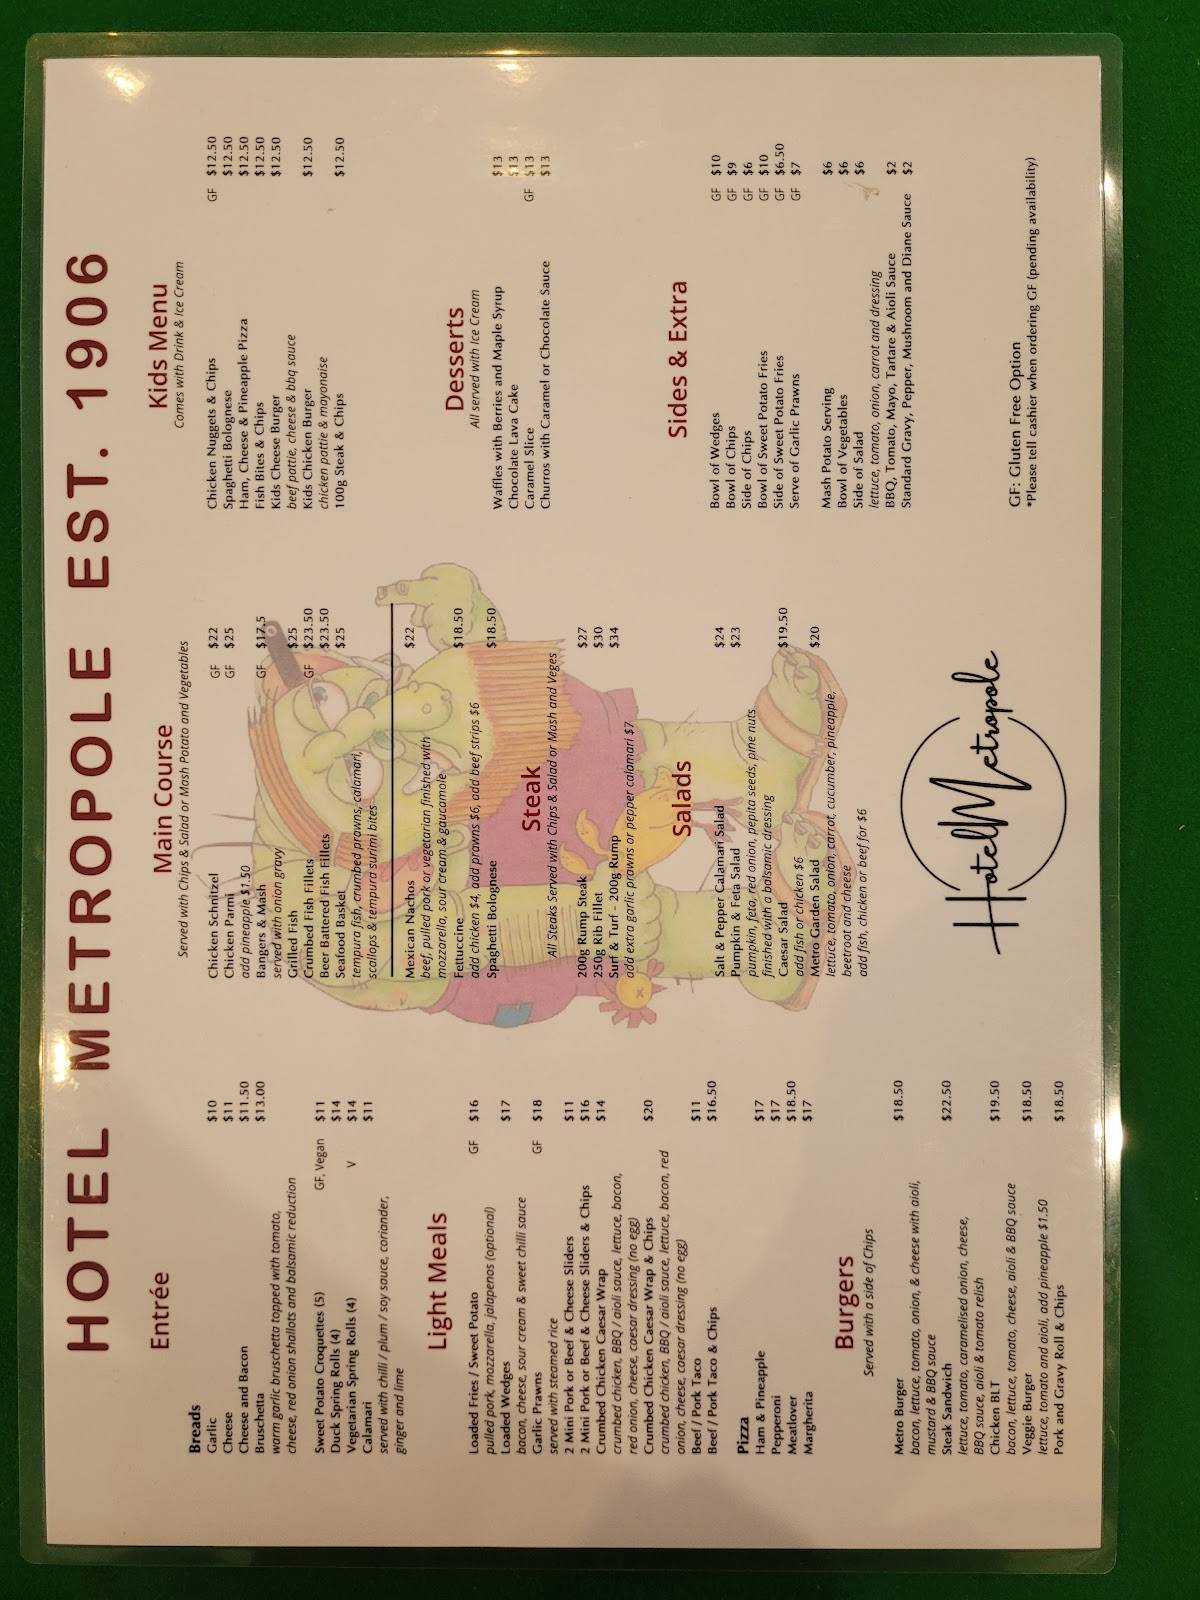 HOTEL METROPOLE EST. 1906
Entrée
Breads
Garlic $10
Cheese $11
Cheese and Bacon $11.50
Bruschetta $13.00
warm garlic bruschetta topped with tomato,
cheese, red onion shallots and balsamic reduction
Sweet Potato Croquettes (5) GF, Vegan $11
Duck Spring Rolls (4) $14
Vegetarian Spring Rolls (4) V $14
Calamari $11
served with chilli / plum / soy sauce, coriander,
ginger and lime
Light Meals
Loaded Fries / Sweet Potato GF $16
pulled pork, mozzarella, jalapenos (optional)
Loaded Wedges $17
bacon, cheese, sour cream & sweet chilli sauce
Garlic Prawns GF $18
served with steamed rice
2 Mini Pork or Beef & Cheese Sliders $11
2 Mini Pork or Beef & Cheese Sliders & Chips $16
Crumbed Chicken Caesar Wrap $14
crumbed chicken, BBQ / aioli sauce, lettuce, bacon,
red onion, cheese, caesar dressing (no egg)
Crumbed Chicken Caesar Wrap & Chips $20
crumbed chicken, BBQ / aioli sauce, lettuce, bacon, red
onion, cheese, caesar dressing (no egg)
Beef / Pork Taco $11
Beef / Pork Taco & Chips $16.50
Pizza
Ham & Pineapple $17
Pepperoni $17
Meatlover $18.50
Margherita $17
Burgers
Served with a side of Chips
Metro Burger $18.50
bacon, lettuce, tomato, onion, & cheese with aioli,
mustard & BBQ sauce
Steak Sandwich $22.50
lettuce, tomato, caramelised onion, cheese,
BBQ sauce, aioli & tomato relish
Chicken BLT $19.50
bacon, lettuce, tomato, cheese, aioli & BBQ sauce
Veggie Burger $18.50
lettuce, tomato and aioli, add pineapple $1.50
Pork and Gravy Roll & Chips $18.50
Main Course
Served with Chips & Salad or Mash Potato and Vegetables
Chicken Schnitzel GF $22
Chicken Parmi GF $25
add pineapple $1.50
Bangers & Mash GF $17.5
served with onion gravy
Grilled Fish $25
Crumbed Fish Fillets GF $23.50
Beer Battered Fish Fillets $23.50
Seafood Basket $25
tempura fish, crumbed prawns, calamari,
scallops & tempura surimi bites
Mexican Nachos $22
beef, pulled pork or vegetarian finished with
mozzarella, sour cream & guacamole
Fettuccine $18.50
add chicken $4, add prawns $6, add beef strips $6
Spaghetti Bolognese $18.50
Steak
All Steaks Served with Chips & Salad or Mash and Veges
200g Rump Steak $27
250g Rib Fillet $30
Surf & Turf - 200g Rump $34
add extra garlic prawns or pepper calamari $7
Salads
Salt & Pepper Calamari Salad $24
Pumpkin & Feta Salad $23
pumpkin, feta, red onion, pepita seeds, pine nuts
finished with a balsamic dressing
Caesar Salad $19.50
add fish or chicken $6
Metro Garden Salad $20
lettuce, tomato, onion, carrot, cucumber, pineapple,
beetroot and cheese
add fish, chicken or beef for $6
Hotel Metropole
Kids Menu
Comes with Drink & Ice Cream
Chicken Nuggets & Chips GF $12.50
Spaghetti Bolognese $12.50
Ham, Cheese & Pineapple Pizza $12.50
Fish Bites & Chips $12.50
Kids Cheese Burger $12.50
beef pattie, cheese & bbq sauce
Kids Chicken Burger $12.50
chicken pattie & mayonaise
100g Steak & Chips $12.50
Desserts
All served with Ice Cream
Waffles with Berries and Maple Syrup $13
Chocolate Lava Cake $13
Caramel Slice GF $13
Churros with Caramel or Chocolate Sauce $13
Sides & Extra
Bowl of Wedges GF $10
Bowl of Chips GF $9
Side of Chips GF $6
Bowl of Sweet Potato Fries GF $10
Side of Sweet Potato Fries GF $6.50
Serve of Garlic Prawns GF $7
Mash Potato Serving $6
Bowl of Vegetables $6
Side of Salad $6
lettuce, tomato, onion, carrot and dressing
BBQ, Tomato, Mayo, Tartare & Aioli Sauce $2
Standard Gravy, Pepper, Mushroom and Diane Sauce $2
GF: Gluten Free Option
*Please tell cashier when ordering GF (pending availability)